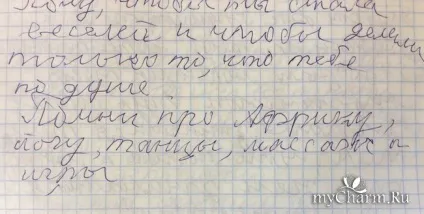 хочу, чтобы ты стала
веселей и чтобы делала
только то, что тебе
по душе.
Помни про Африку,
йогу, танцы, массаж и
игры
myCharm.Ru